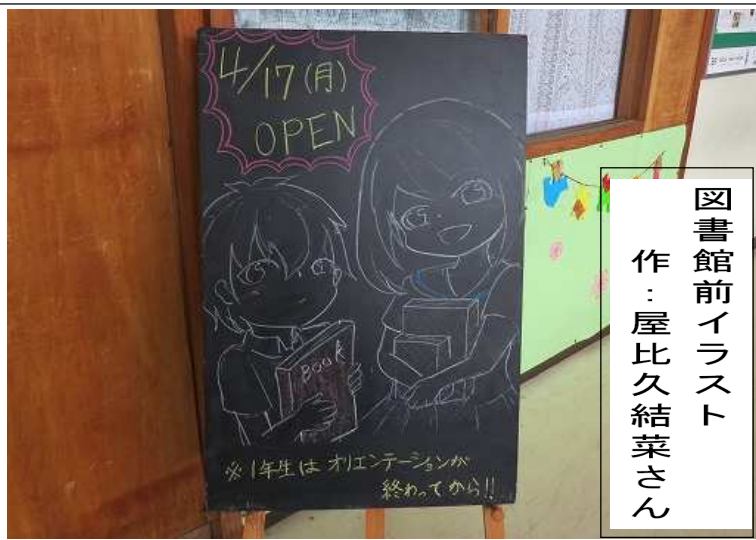 4/17(月)
OPEN
BOOK
※1年生はオリエンテーションが
終わってから!!
図書館前イラスト
作:屋比久結菜さん